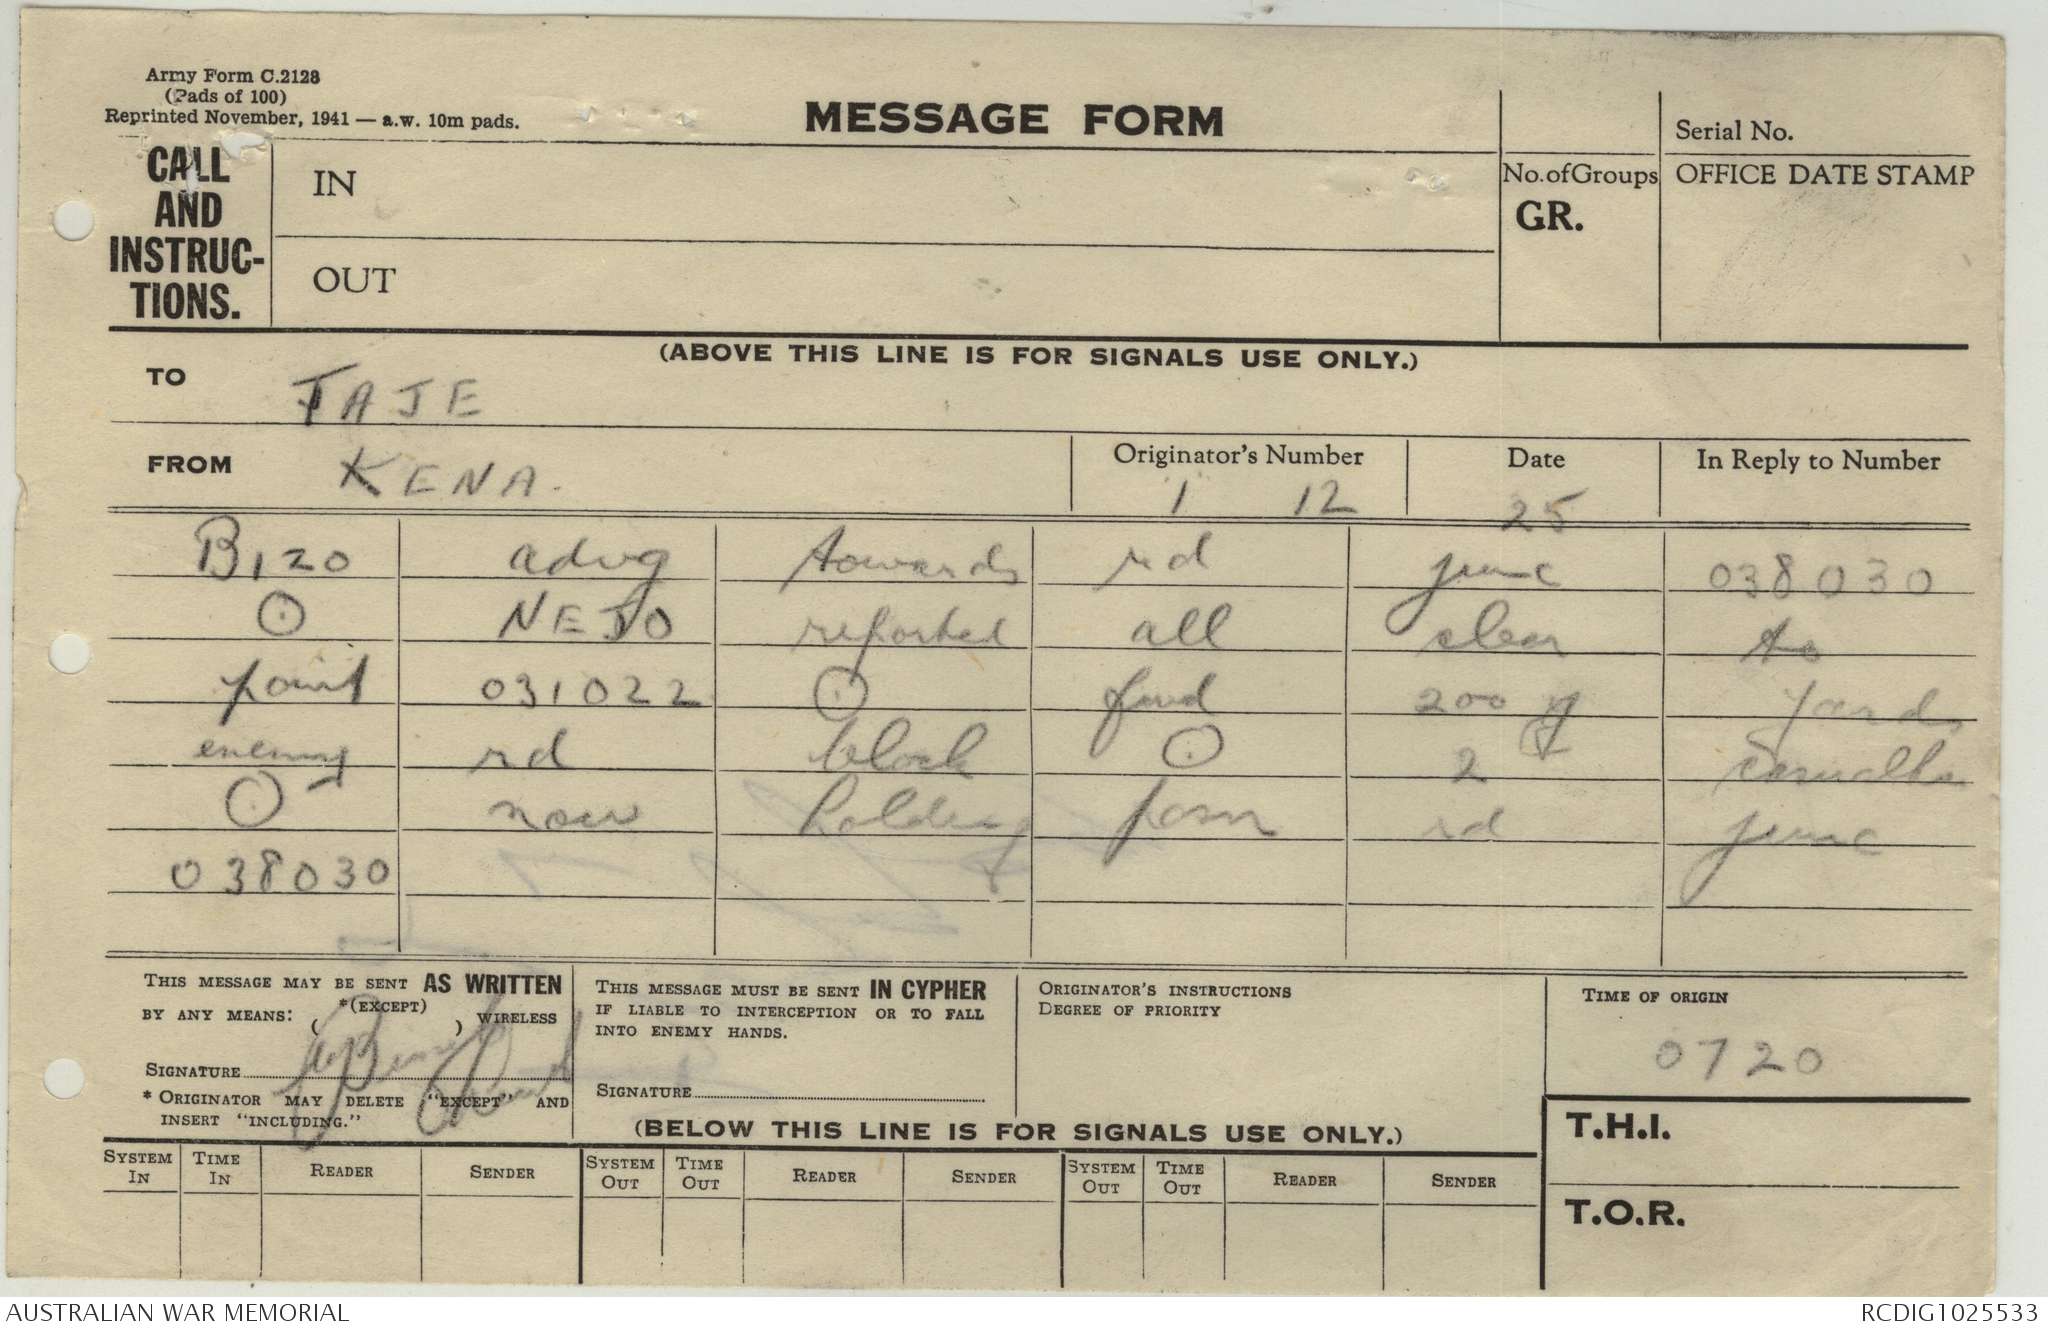 Army Form C.2128
(Pads of 100)
Reprinted November, 1941 — a.w. 10m pads.
MESSAGE FORM
Serial No.
CALL AND INSTRUC-TIONS.
IN
No. of Groups
GR.
OFFICE DATE STAMP
OUT
(ABOVE THIS LINE IS FOR SIGNALS USE ONLY.)
TO
FAJE
FROM
KENA.
Originator's Number
1 12
Date
25
In Reply to Number
B120 advg towards rd junc 038030
⊙ NEJO reported all clear to
point 031022 ⊙ fwd 200 yards
enemy rd block ⊙ 2
⊙ now holding posn rd junc
038030
THIS MESSAGE MAY BE SENT AS WRITTEN
BY ANY MEANS: *(EXCEPT) ( ) WIRELESS
SIGNATURE
* ORIGINATOR MAY DELETE "EXCEPT" AND
INSERT "INCLUDING."
THIS MESSAGE MUST BE SENT IN CYPHER
IF LIABLE TO INTERCEPTION OR TO FALL
INTO ENEMY HANDS.
SIGNATURE
ORIGINATOR'S INSTRUCTIONS
DEGREE OF PRIORITY
TIME OF ORIGIN
0720
(BELOW THIS LINE IS FOR SIGNALS USE ONLY.)
T.H.I.
SYSTEM IN TIME IN READER SENDER SYSTEM OUT TIME OUT READER SENDER SYSTEM OUT TIME OUT READER SENDER
T.O.R.
AUSTRALIAN WAR MEMORIAL
RCDIG1025533